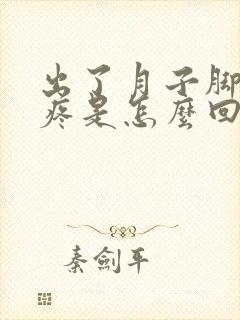 出了月子脚
疼是怎麼回
秦劍平